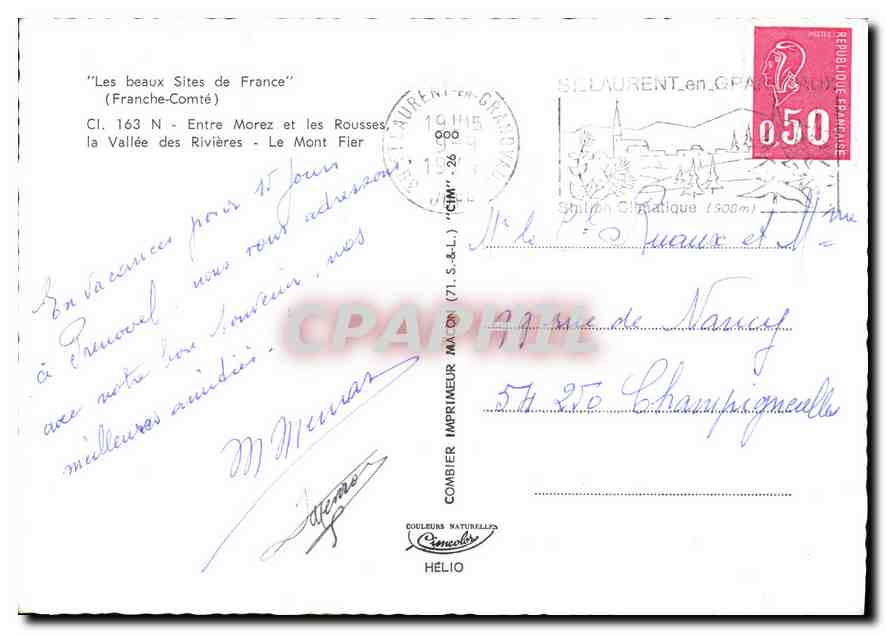 "Les beaux Sites de France"
(Franche-Comté)
Cl. 163 N - Entre Morez et les Rousses,
la Vallée des Rivières - Le Mont Fier
En vacances pour 15 jours
à Prenovel, nous vous adressons,
avec notre bon souvenir, nos
meilleures amitiés.
COMBIER IMPRIMEUR MACON (71. S.-&-L.) "CIM" - 26 000
COULEURS NATURELLES
Cimcolor
HÉLIO
39 ST LAURENT-EN-GRANDVAUX
19H15
ST LAURENT en GRANDVAUX
Station Climatique (900m)
POSTES
REPUBLIQUE FRANÇAISE
0,50
Mr le Ruaux et Mme
99 rue de Nancy
54 250 Champigneulles
CPAPHIL